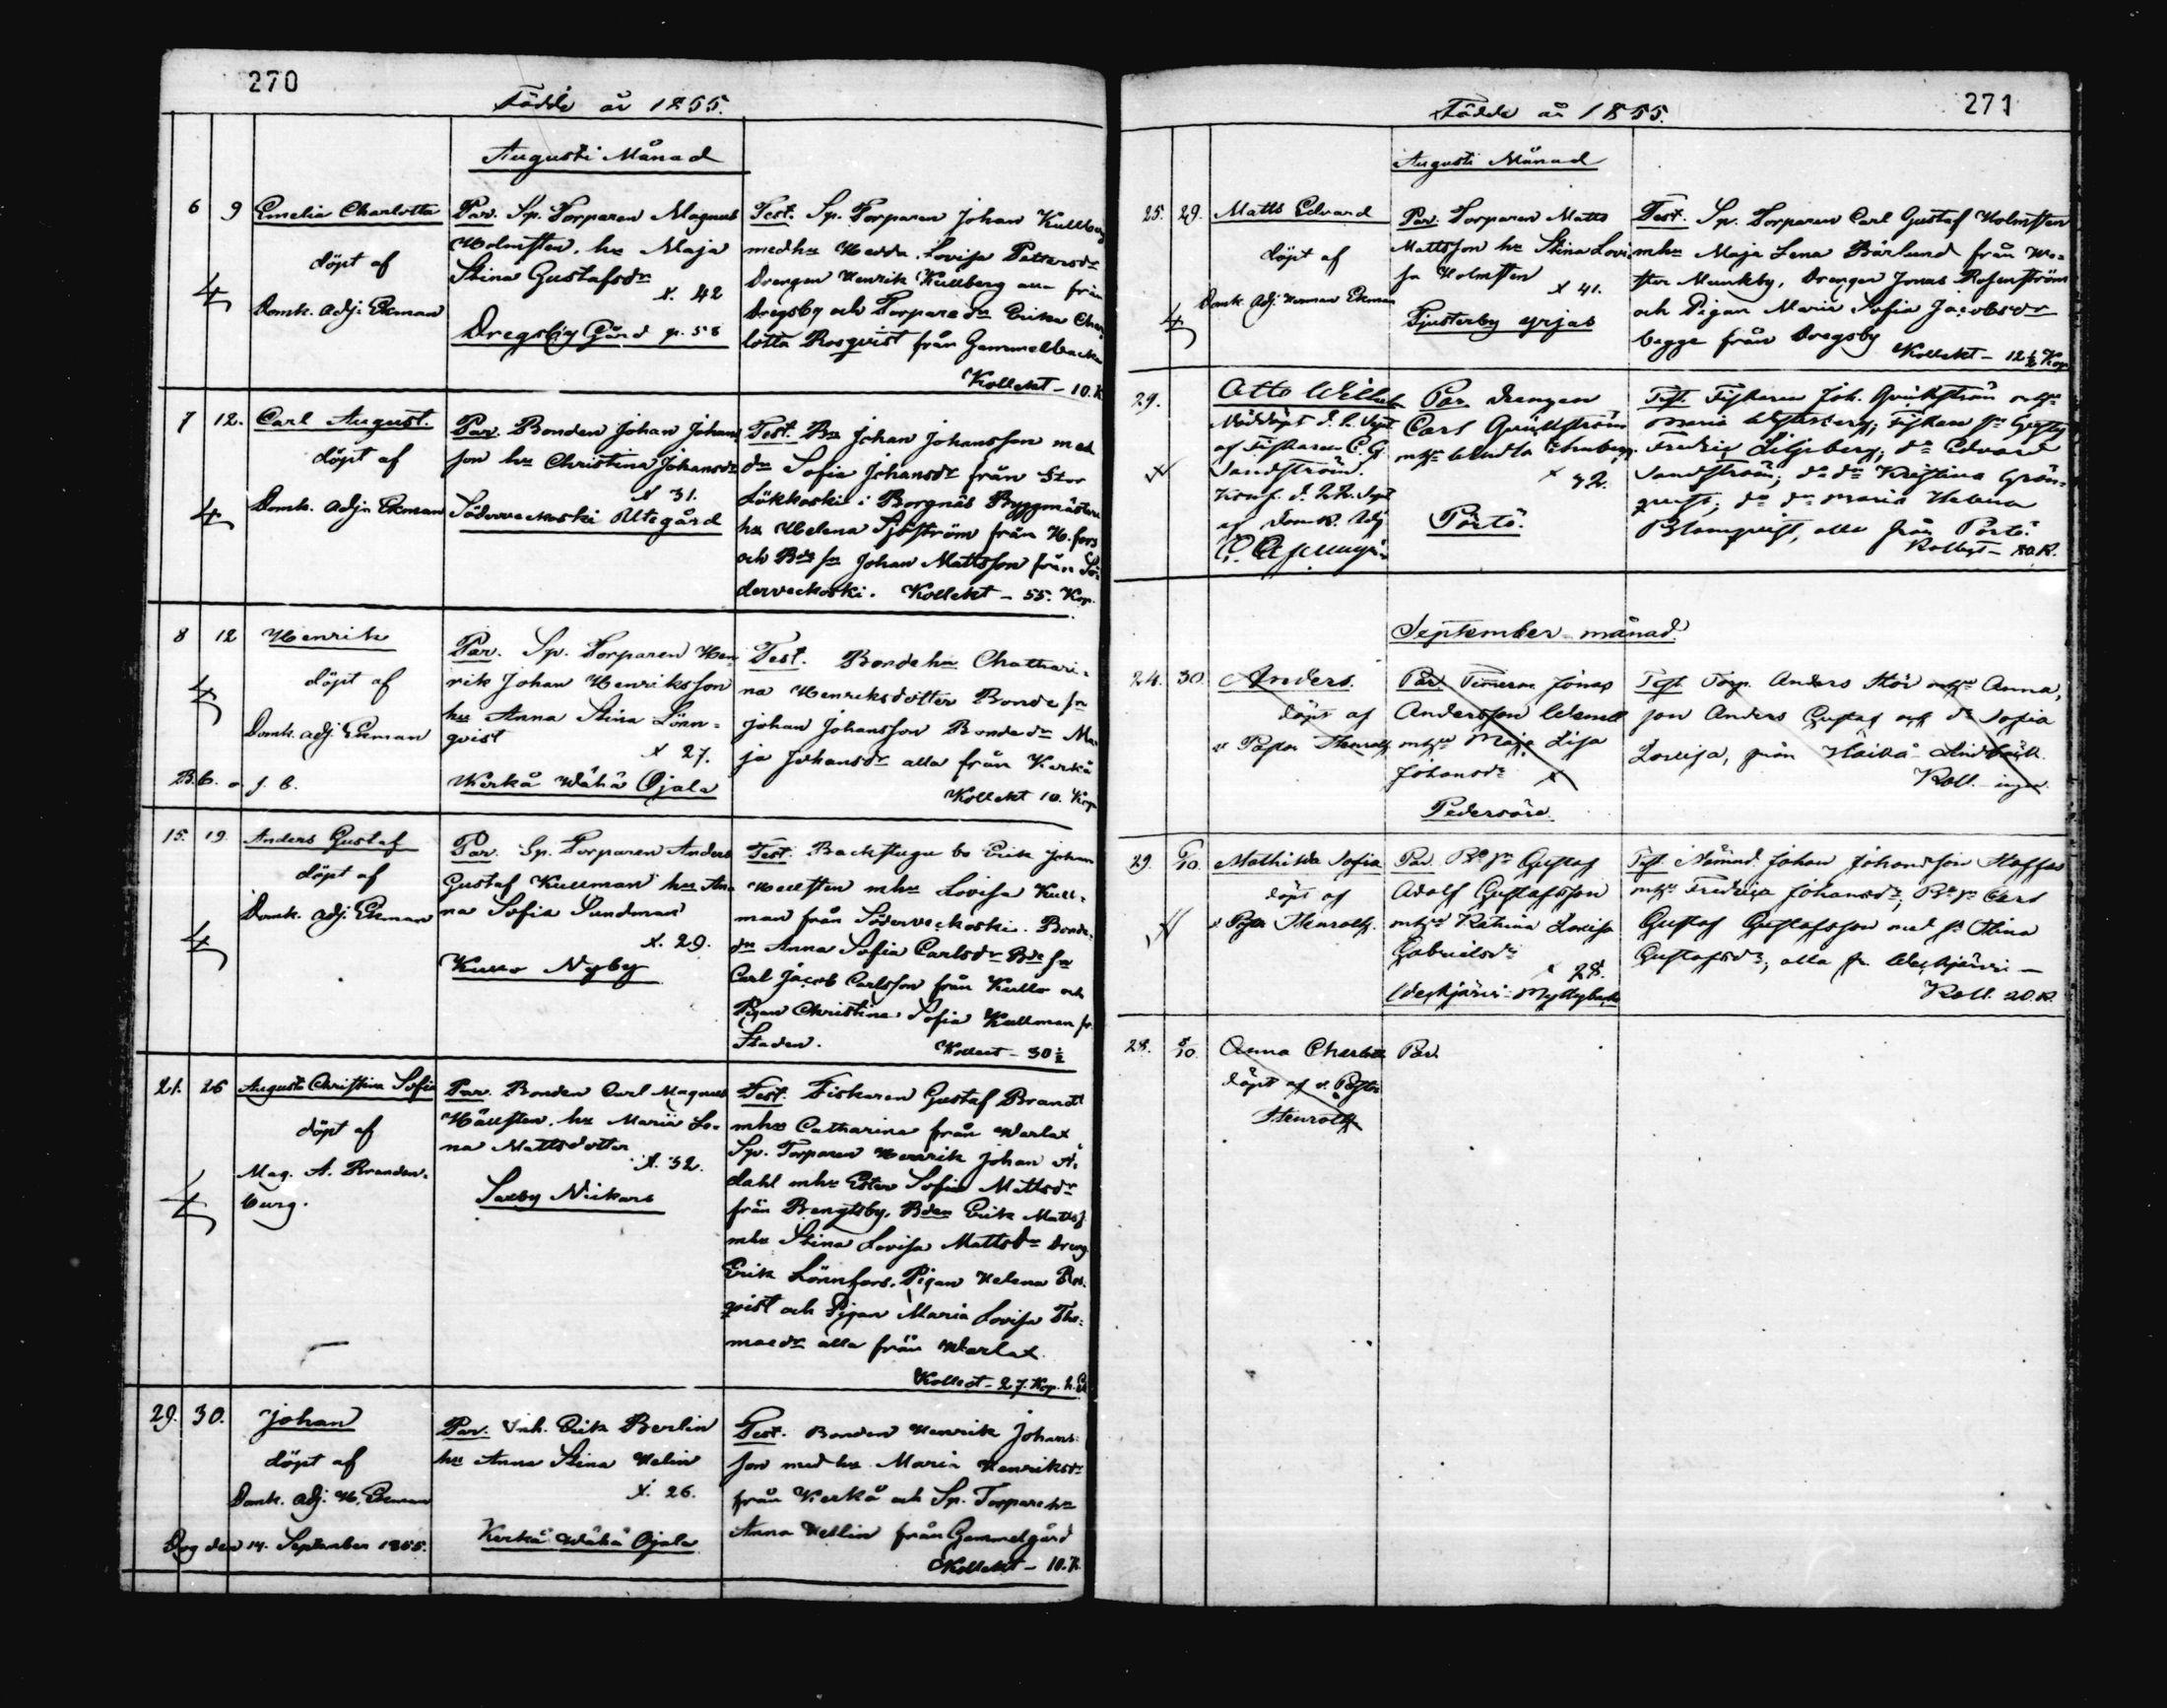 270
Födde år 1855.
Augusti Månad
6 9 Emelia Charlotta
döpt af
Domk. adj. Ekman
Par. Sp. Torparen Magnus
Holmsten, hu Maja
Stina Gustafsdr
x. 42
Dregsby Gård p. 58
Test. Sp. Torparen Johan Kullberg
med hu Hedda Lovisa Pettersdr
Drengen Henrik Kullberg alla från
Dregsby och Torparedr Erika Char
lotta Rosqvist från Gammelbacka
Kollekt - 10. K
7 12. Carl August.
döpt af
Domk. adjn Ekman
Par. Bonden Johan Johans
son hu Christina Johansdr
x 31.
Söderveckoski Utegård
Test. Bn Johan Johansson med
dn Sofia Johansdr från Stor
Lökkoski i Borgnäs Byggmästare
hu Helena Sjöström från H.fors
och Bde sn Johan Mattsson från Sö
derveckoski. Kollekt - 55. Kop.
8 12 Henrik
döpt af
Domk. adj. Ekman
Par. Sp. Torparen Hen
rik Johan Henriksson
hu Anna Stina Lönn=
qvist
x 27.
Kerkå Wähä Ojala
Test. Bonde hu Chathari=
na Henriksdotter Bonde sn
Johan Johansson Bonde dr Ma
ja Johansdr alla från Kerkå
Kollekt 10. Kop
15. 19. Anders Gustaf
döpt af
Domk. adj. Ekman
Par. Sp. Torparen Anders
Gustaf Kullman hu An
na Sofia Sundman
x. 29.
Kullo Nyby
Test. Backstugu bo Erik Johan
Hellsten mhu Lovisa Kull=
man från Söderveckoski. Bonde=
dn Anna Sofia Carlsdr Bde sn
Carl Jacob Carlsson från Kullo och
Pigan Christina Sofia Kullman fr.
Staden. Kollect - 30 ½
21. 26 Augusta Christina Sofia
döpt af
Mag. A. Branden=
burg.
Par. Bonden Carl Magnus
Hällsten, hu Maria Le=
na Mattsdotter
x. 32.
Saxby Nickars
Test. Fiskaren Gustaf Brandt
mhu Catharina från Warlax
Sp. Torparen Henrik Johan Å=
dahl mhu Ester Sofia Mattsdr
från Bengtsby, Bden Erik Matts
mhu Stina Lovisa Mattsdr Dreng
Erik Lönnfors, Pigan Helena Ros=
qvist och Pigan Maria Lovisa Tho=
masdr alla från Warlax
Kollect - 27. Kop.
29. 30. Johan
döpt af
Domk. adj. H. Ekman
Dog den 14. September 1855.
Par. Inh. Erik Berlin
hu Anna Stina Helin
x. 26.
Kerkå Wähä Ojala
Test. Bonden Henrik Johans
son med hu Maria Henriksdr
från Kerkå och Sp. Torpare hu
Anna Hellin från Gammelgård
Kollekt - 10. K
271
Födde år 1855.
Augusti Månad
25. 29. Matts Edvard
döpt af
Domk. adj. Herman Ekman
Par. Torparen Matts
Mattsson hu Stina Lovi
sa Holmsten
x 41.
Tjusterby yrjas
Test. Sp. Torparen Carl Gustaf Holmsten
mhu Maja Lena Bärlund från We=
ster Munkby, Drengen Jonas Rosenström
och Pigan Maria Sofia Jacobsdr
begge från Dregsby
Kollekt - 12 ½ Kop
29. Otto Wilhelm
af Fiskaren C. G.
Sandström.
af Domk. Adj
Par. drengen
x 32.
Pörtö.
Fredric Liljeberg; dn Edvard
Sandström; dn Kristina Grön=
qvist; Maria Helena
Blomqvist, alla från Pörtö.
September månad
24. 30 Anders.
döpt af
v Pastor Stenroth
Par. Timerm Jonas
Andersson Wenell
mhu Maja Lisa
Johansdr x
Pedersöre
Test. Torp. Anders Stör mhu Anna,
son Anders Gustaf och dr Sofia
Lovisa, från Haikå
Koll. ingen
29. 6/10. Mathilda Sofia
döpt af
v Pastor Stenroth.
Par. Bde sn Gustaf
Adolf Gustafsson
mhu Katrina Lovisa
Gabrielsdr
x 28.
Weckjärvi Myllyback
Test. Nämnd. Johan Johansson Staffas
mhu Fredrica Johansdr; Bde sn Carl
Gustaf Gustafsson med Stina
Gustafsdr, alla fr. Weckjärvi -
Koll. 20. K.
28. 8/10. Anna Charlotta
döpt af v. Pastor
Stenroth
Par.